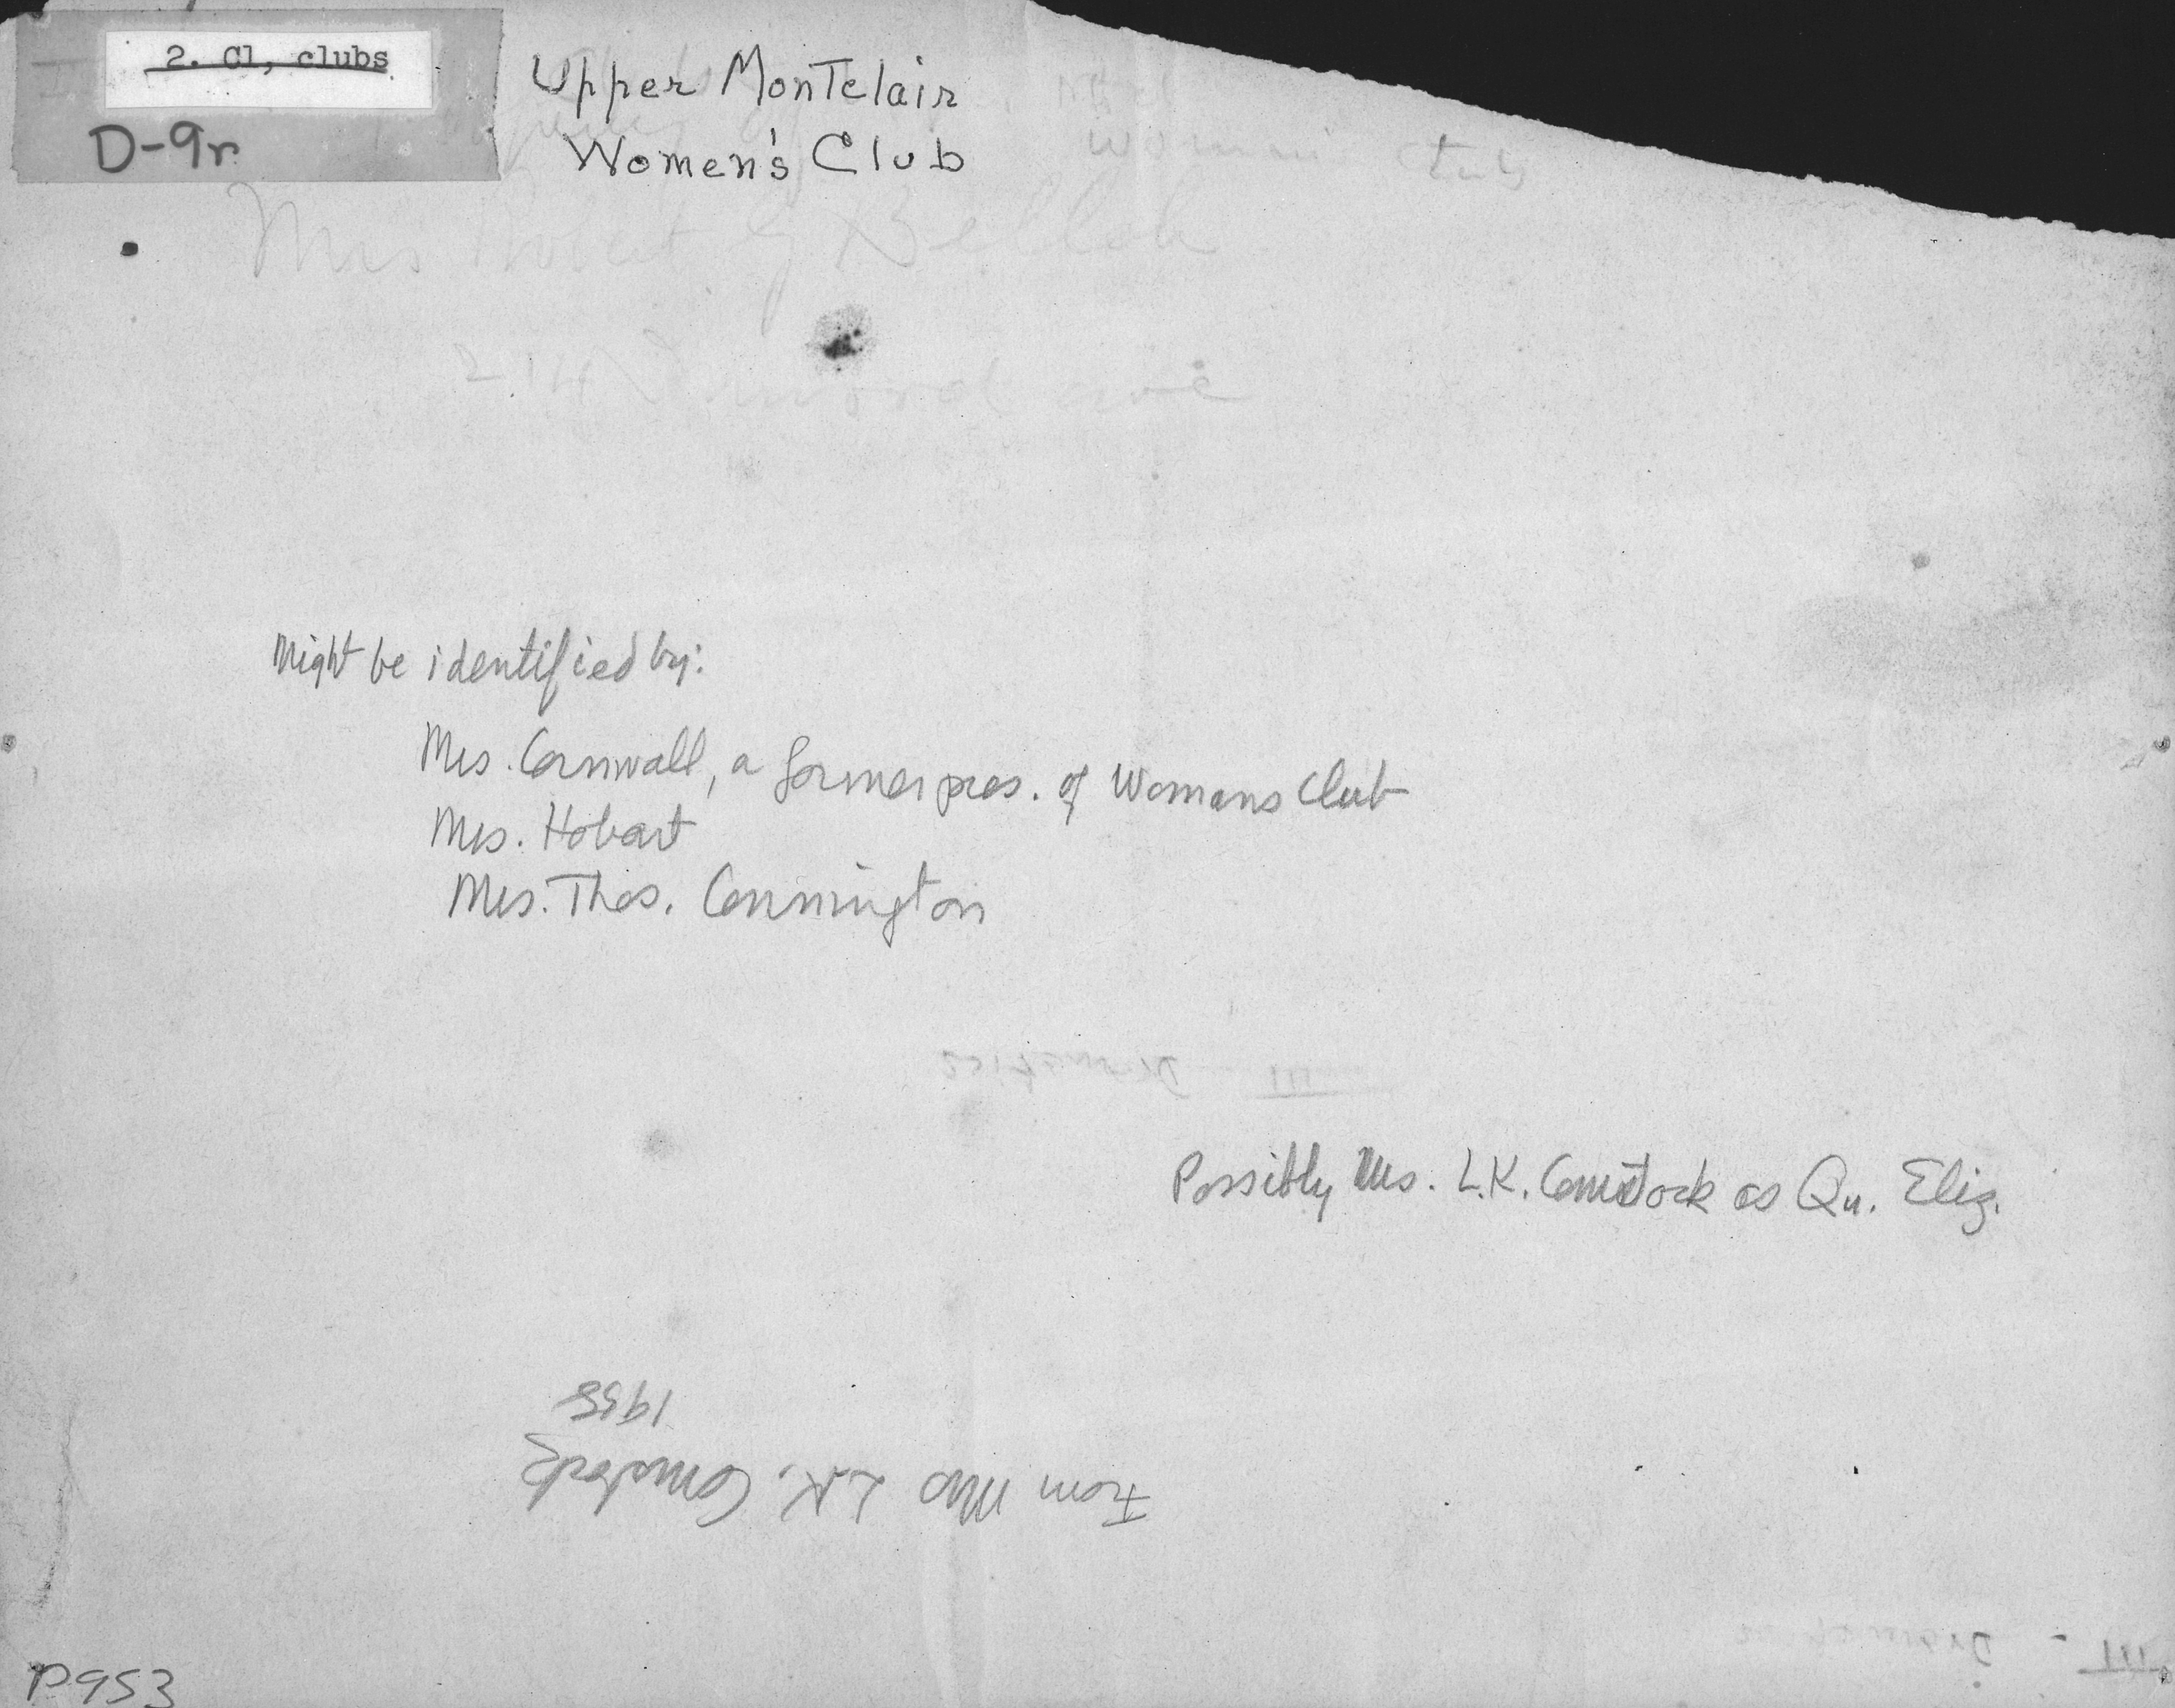 2. Cl, clubs
D-9r
Upper Montclair
Women's Club
Woman's Club
Mrs Robert G
ave
Might be identified by:
Mrs. Cornwall, a former pres. of Womans Club
Mrs. Hobart
Mrs. Thos. Cannington
III Dramatics
Possibly Mrs. L.K. Comstock as Qu. Eliz.
From Mrs L.K. Comstock
1938
III - Dramatics
P953